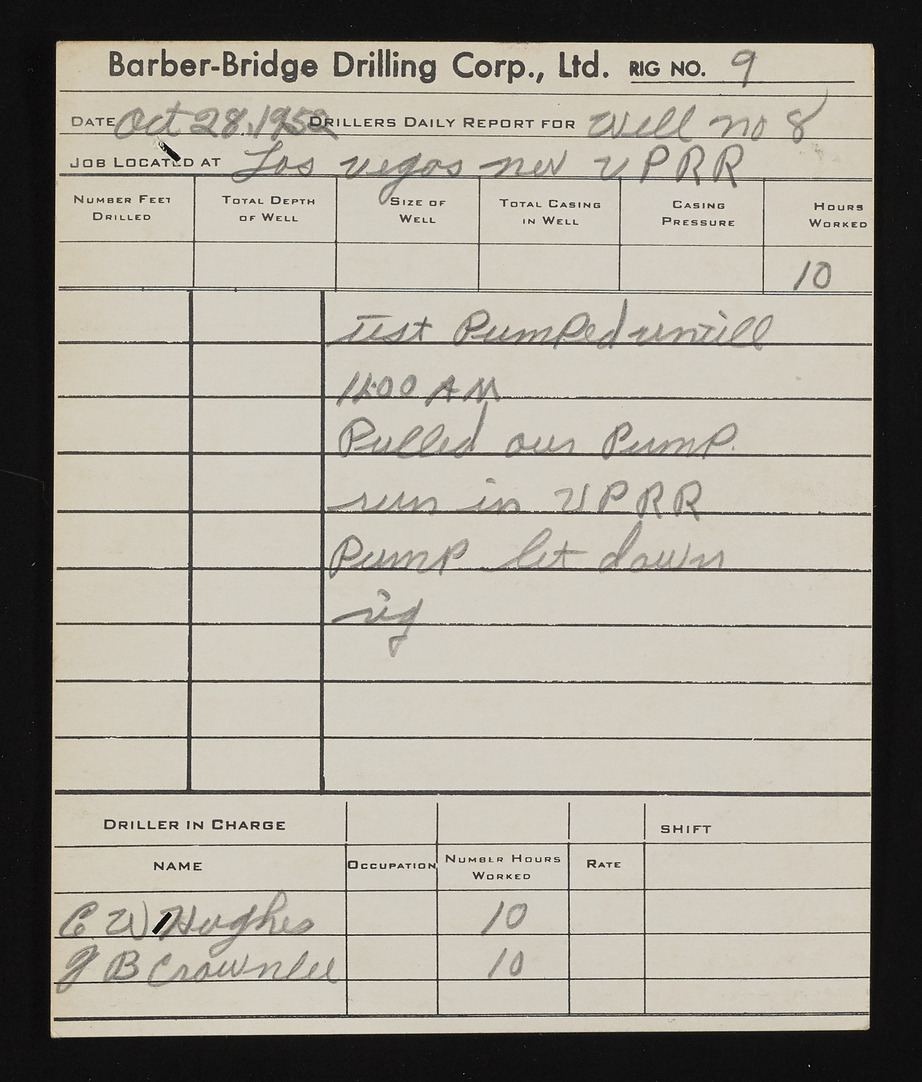 Barber-Bridge Drilling Corp., Ltd. RIG NO. 9
DATE Oct 28, 1952 DRILLERS DAILY REPORT FOR Well no 8
JOB LOCATED AT Las vegas nev UPRR
NUMBER FEET DRILLED TOTAL DEPTH OF WELL SIZE OF WELL TOTAL CASING IN WELL CASING PRESSURE HOURS WORKED
10
Test Pumped untill
11:00 AM
Pulled our Pump.
run in UPRR
Pump let down
rig
DRILLER IN CHARGE SHIFT
NAME OCCUPATION NUMBER HOURS WORKED RATE
C W Hughes 10
J B Crownlee 10